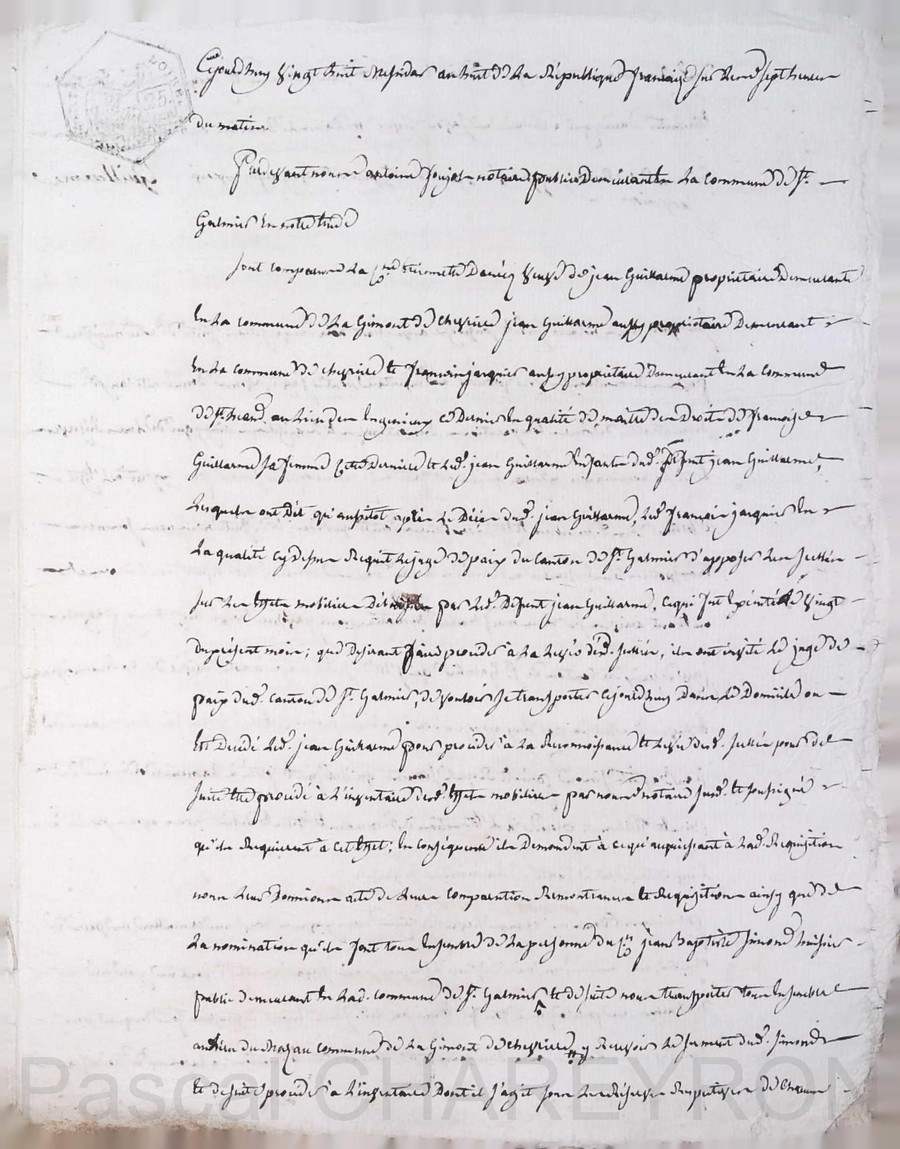 Cejourdhuy vingt huit messidor an huit de la République française sur les sept heures
du matin
Pardevant nous antoine notaire public demeurant en la commune de St.
Galmier en notre étude
Sont comparus la Danéry veuve de jean Guillarme propriétaire demeurante
en la commune de la Gimont de chevrières jean Guillarme aussy propriétaire demeurant
en la commune de chevrières et françois jacquier aussy propriétaire demeurant en la commune
de St. au lieu ce dernier en qualité de maitre des droits de françoise
Guillarme sa femme cette derniere et led. jean Guillarme enfants dud. défunt jean Guillarme,
lesquels ont dit qu'aussitot après le décès dud. jean Guillarme, led. françois jacquier en
la qualité cy dessus requit le juge de paix du canton de St. Galmier d'apposer les scellés
sur les effets mobiliers par led. défunt jean Guillarme, ce qui fut exécuté le vingt
du présent mois; que désirant faire procéder à la levée desd. scellés, ils ont invité le juge de
paix dud. canton de St. Galmier, de vouloir se transporter cejourdhuy dans le domicile ou
est décédé led. jean Guillarme pour procéder à la reconnoissance et levée desd. scellés pour de
suite etre procédé à l'inventaire desd. effets mobiliers par nous notaire susd. et soussigné
qu'ils requierent à cet effet; en conséquence ils demandent à ce qu'acquiesçant à lad. requisition
nous leur donnions acte de leurs comparution remontrances et requisitions ainsy que de
la nomination qu'ils font tous ensemble de la personne du jean Baptiste Simond huissier
public demeurant en lad. commune de St. Galmier et de suite nous transporter tous ensemble
au lieu du mazau commune de la Gimont de chevrières, y recevoir le serment dud. Simond
et de suite procéder à l'inventaire dont il s'agit sous les réserves respectives de chacun
Pascal CHAREYRON